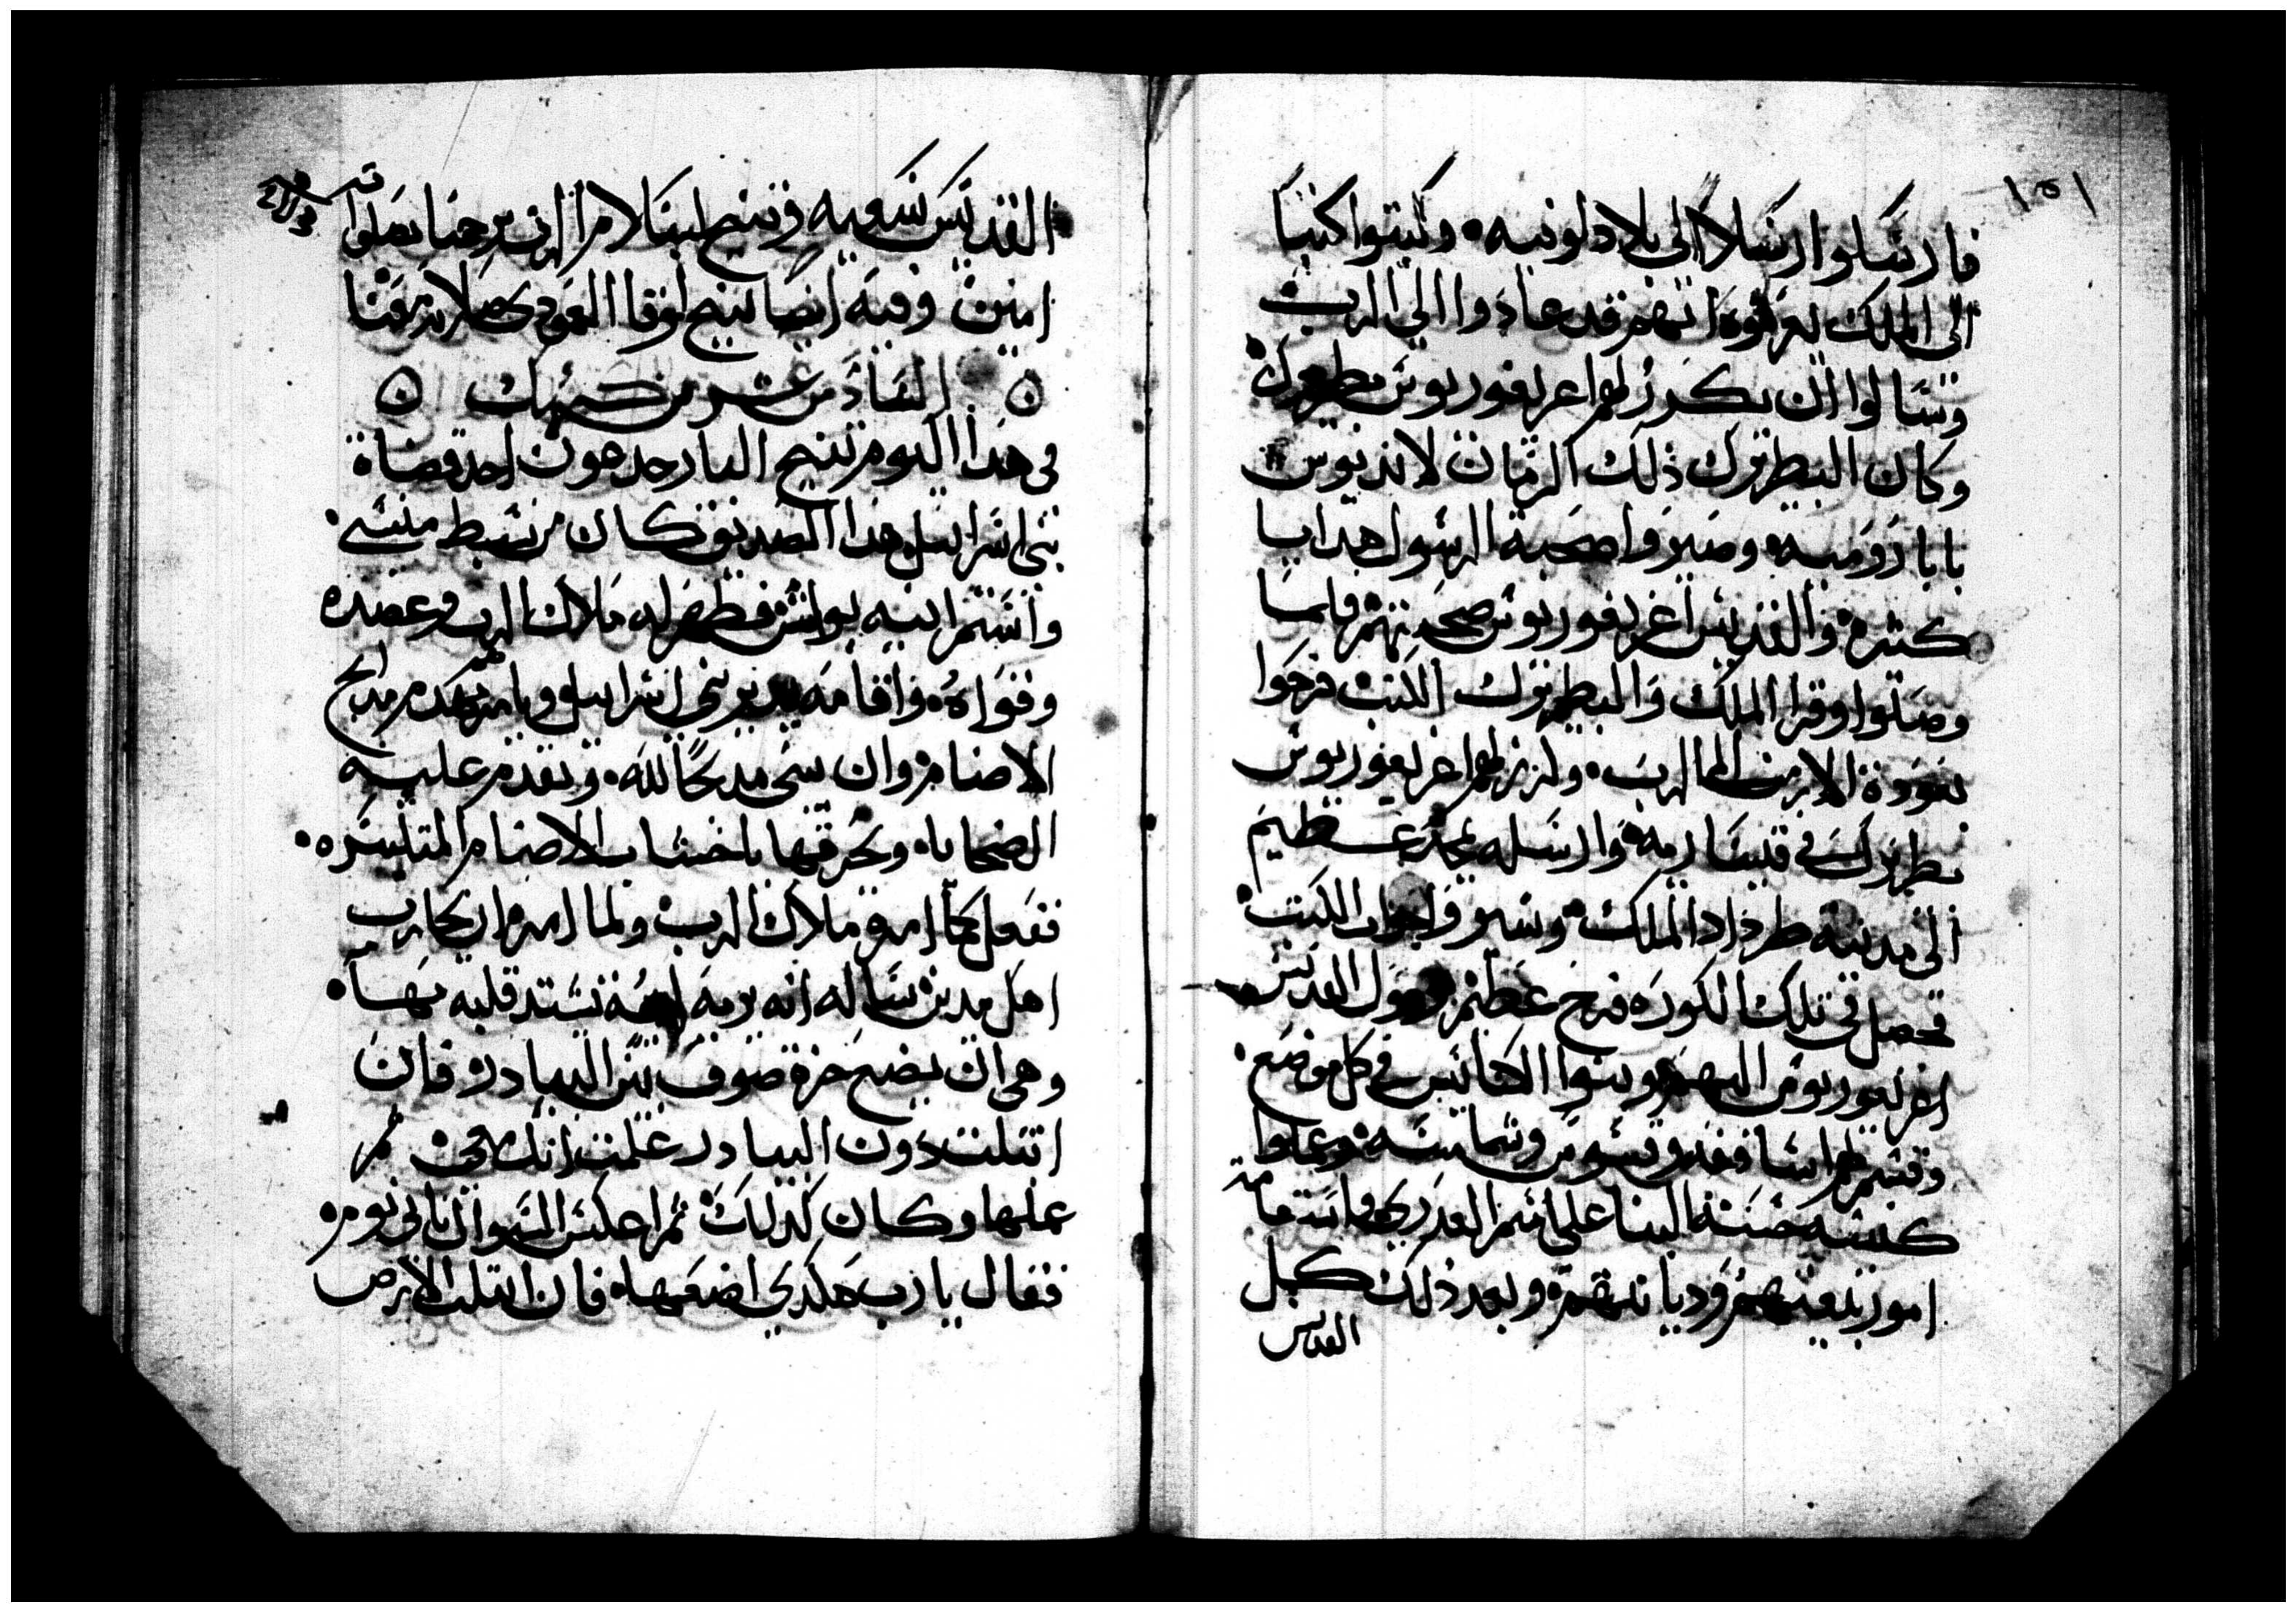 ١٥١
فارسلوا رسلا الى بلاد لونيه وكتبوا كتبا
الى الملك يعرفوه انهم قد عادوا الى الرب
وسالوا ان يكرز لهم اغريغوريوس بطريرك
وكان البطريرك ذلك الزمان لانديوس
بابا روميه وصيروا صحبة الرسول هدايا
كثيره والقديس اغريغوريوس صحبتهم فلما
وصلوا وقرا الملك والبطريرك الكتب فرحوا
بعودة الارمن الى الرب وكرز لهم اغريغوريوس
بطريرك في قيساريه وارسله بمجد عظيم
الى مدينه طرداد الملك وسيروا جواب الكتب
فحصل في تلك الكوره فرح عظيم القديس
اغريغوريوس اليهم وبنوا الكنايس في كل موضع
وقسم لهم اساقفه وقسوس وشمامسه وعملوا
كنيسه حسنة البنا على اسم العدرى واستقامة
امور بيعتهم وديانتهم وبعد ذلك كمل
القديس
القديس سعيه وتنيح لينال امرا الذي يرحمنا بصلواته
امين وفيه ايضا تنيح لوقا العمودي صلاته معنا
السادس عشر من كيهك
في هذا اليوم تنيح البار جدعون احد قضاة
بني اسراييل هذا الصديق كان من سبط منسى
واسم ابيه يواش فظهر له ملاك الرب وعضده
وقواه واقامه يدبر بني اسراييل ويامره بهدم مدابح
الاصنام وان يبني مدبحًا لله ويقدم عليه
الضحايا ويحرقها باخشاب الاصنام المتكسره
ففعل كما امره ملاك الرب ولما امره ان يحارب
اهل مدين ساله انه يريه نشتد قلبه بها
وهي ان يضع جزة صوف بين البيادر فان
ابتلت دون البيادر علمت انك معي ثم
عملها وكان كدلك ثم اعكس السوال ثاني يوم
فقال يا رب هكدي اضعها فان ابتلت الارض